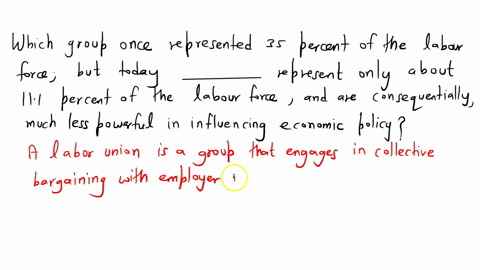 Which group once represented 35 percent of the labour
force; but today ________ represent only about
11.1 percent of the labour force, and are consequentially,
much less powerful in influencing economic policy?
A labor union is a group that engages in collective
bargaining with employer